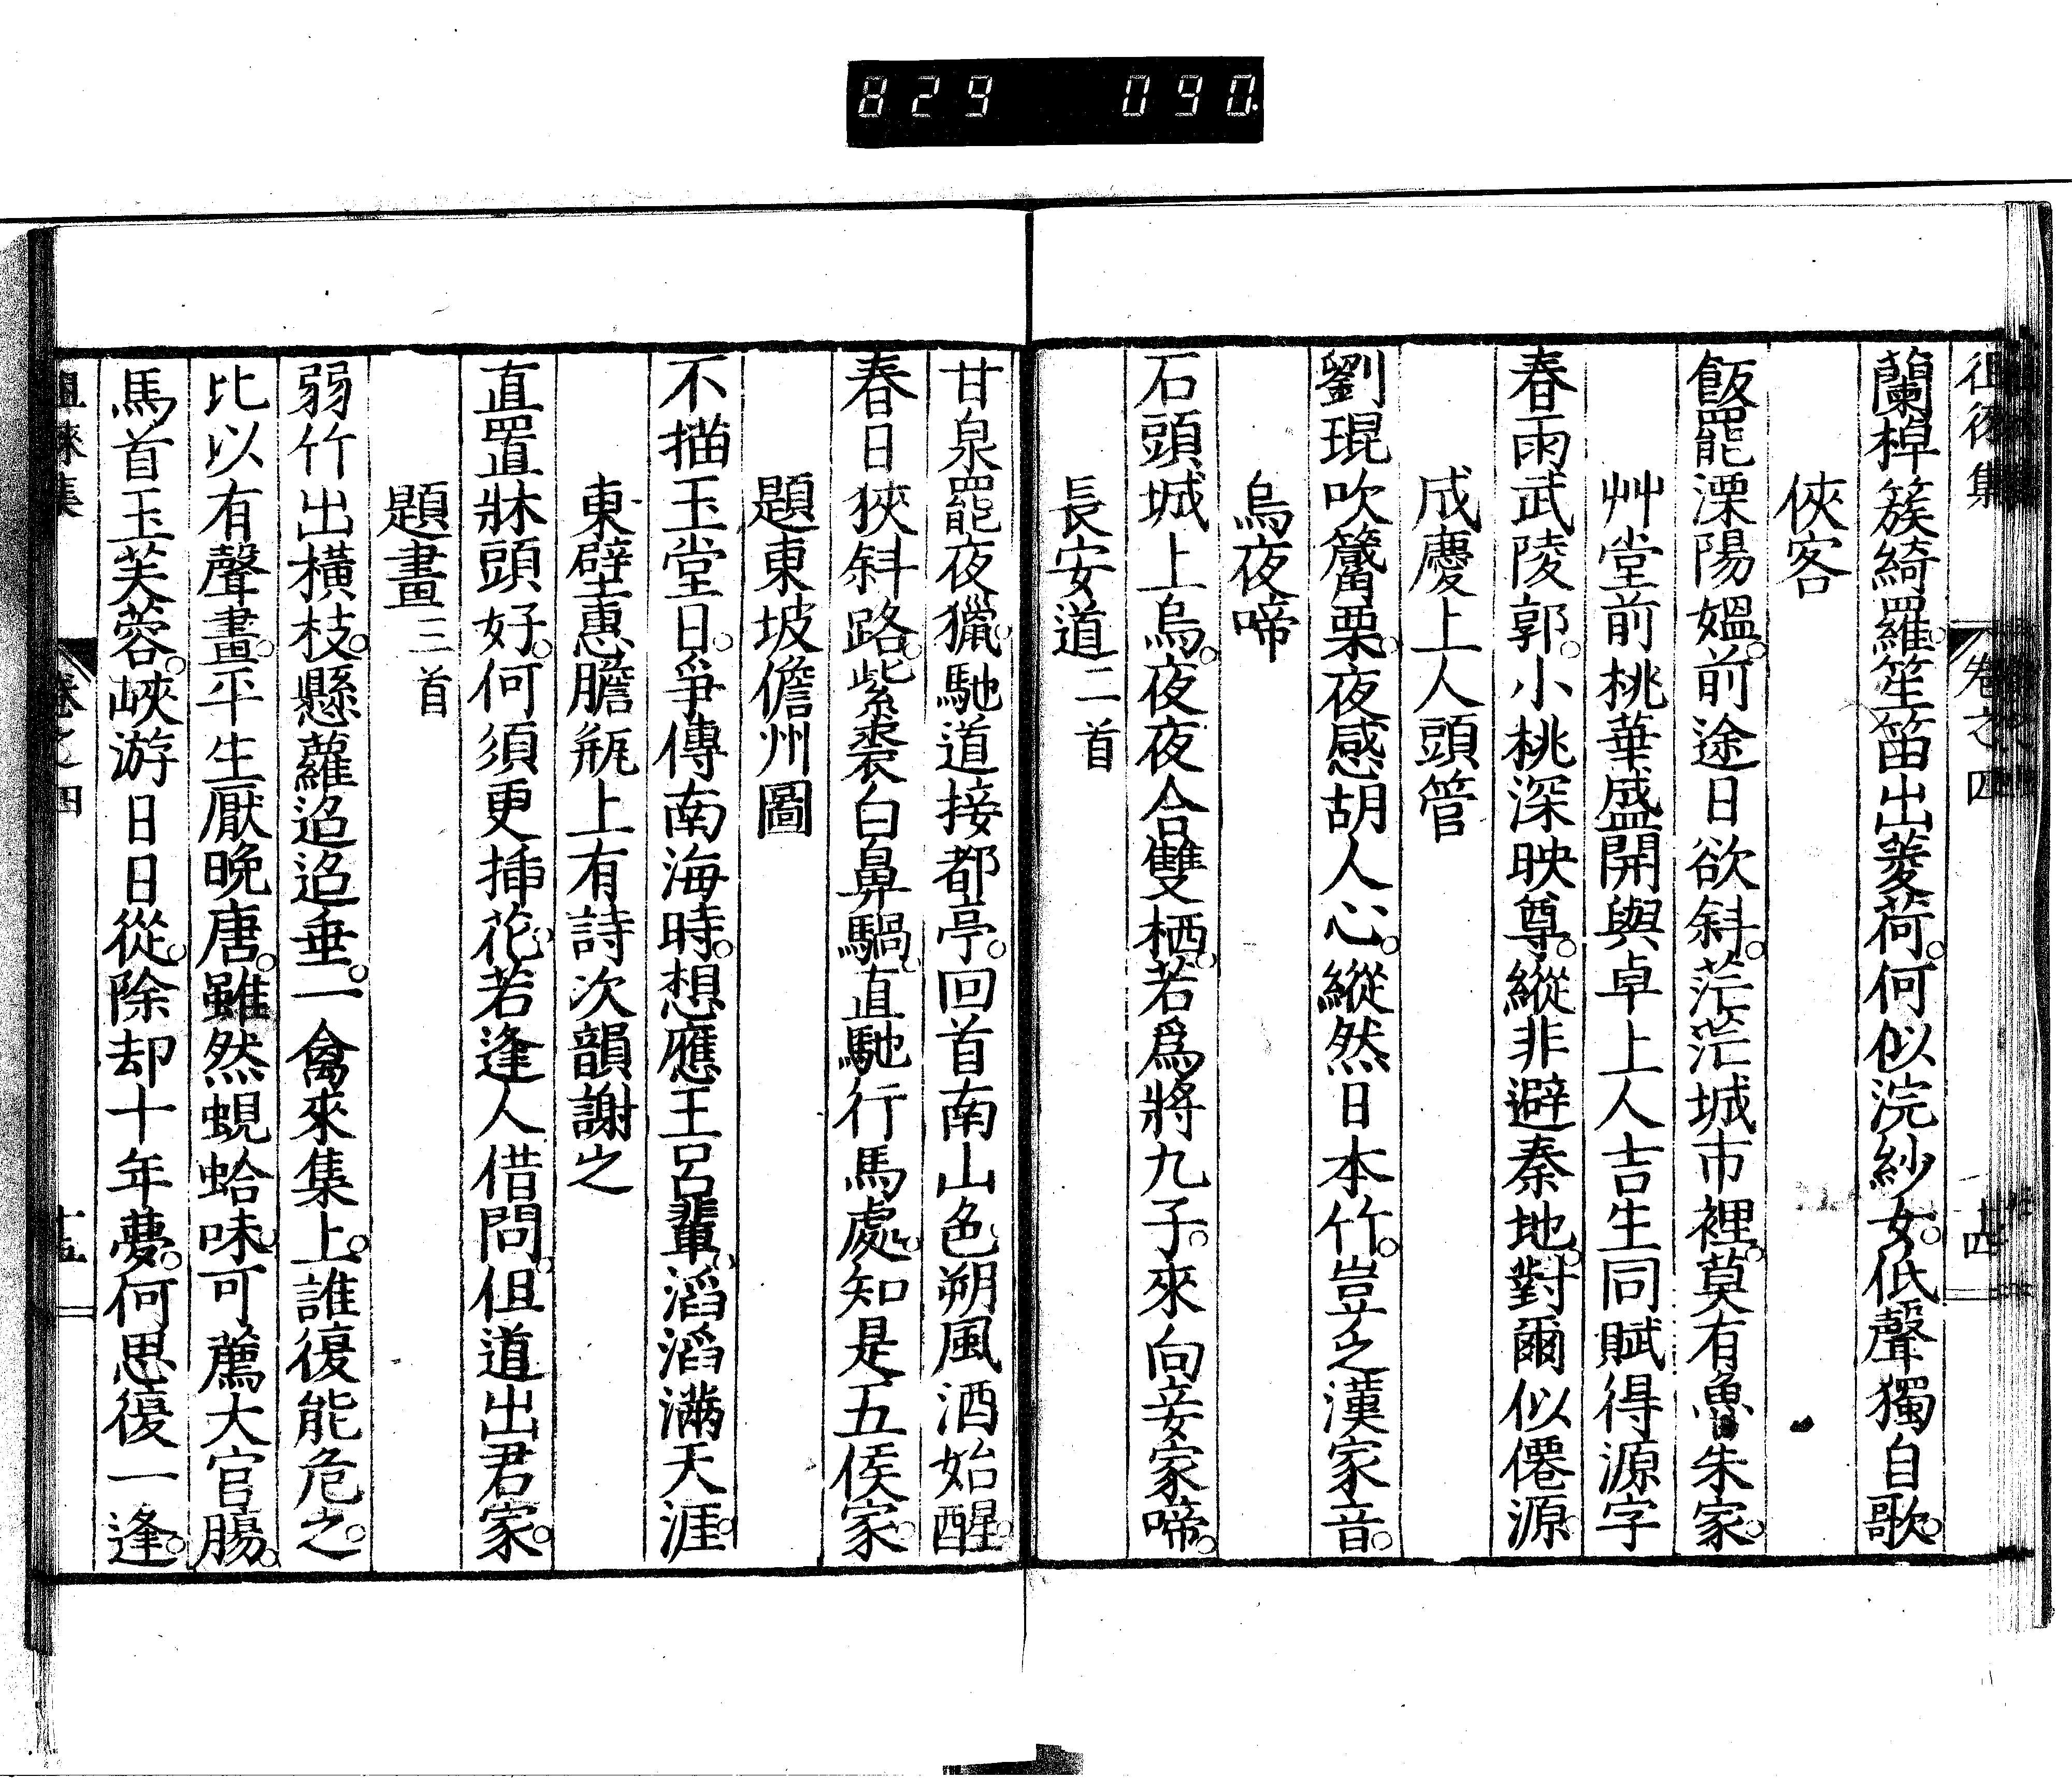 829 090
徂徠集 卷之四 十四
蘭棹簇綺羅。笙笛出菱荷。何似浣紗女。低聲獨自歌。
俠客
飯罷溧陽媼。前途日欲斜。茫茫城市裡。莫有魯朱家。
艸堂前桃華盛開與卓上人吉生同賦得源字
春雨武陵郭。小桃深映尊。縱非避秦地。對爾似僊源。
成慶上人頭管
劉琨吹篳栗。夜感胡人心。縱然日本竹。豈乏漢家音。
烏夜啼
石頭城上烏。夜夜合雙栖。若爲將九子。來向妾家啼。
長安道二首
甘泉罷夜獵。馳道接都亭。回首南山色。朔風酒始醒。
春日狹斜路。紫裘白鼻騧。直馳行馬處。知是五侯家。
題東坡儋州圖
不描玉堂日。爭傳南海時。想應王呂輩。滔滔滿天涯。
東壁惠膽瓶上有詩次韻謝之
直置牀頭好。何須更插花。若逢人借問。但道出君家。
題畫三首
弱竹出橫枝。懸蘿迢迢垂。一禽來集上。誰復能危之。
比以有聲畫。平生厭晩唐。雖然蜆蛤味。可薦大官腸。
馬首玉芙蓉。峽游日日從。除却十年夢。何思復一逢。
徂徠集 卷之四 十五